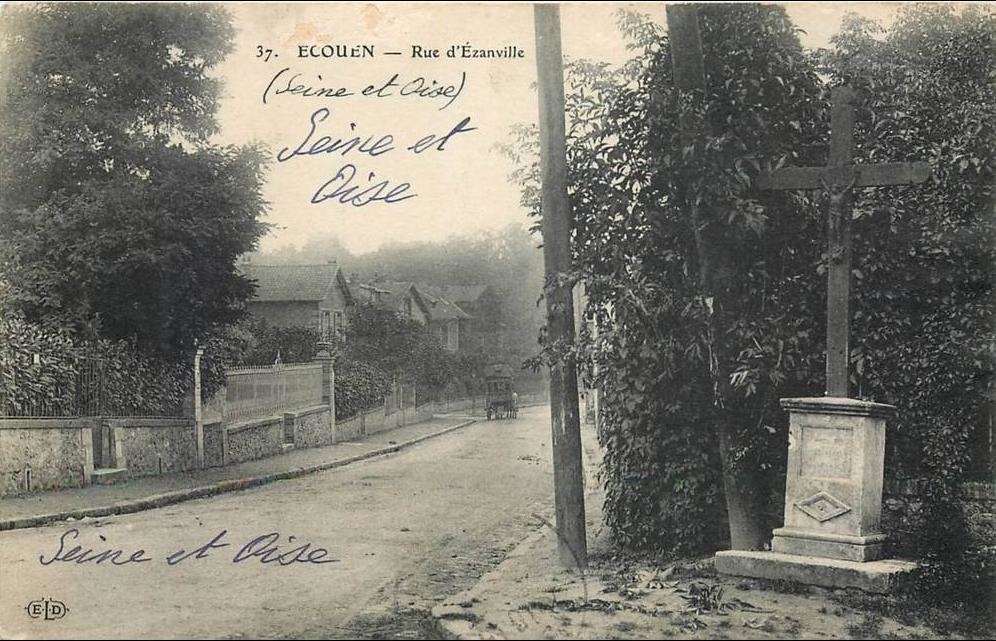 37. ECOUEN — Rue d'Ézanville
(Seine et Oise)
Seine et
Oise
Seine et Oise
E.L.D